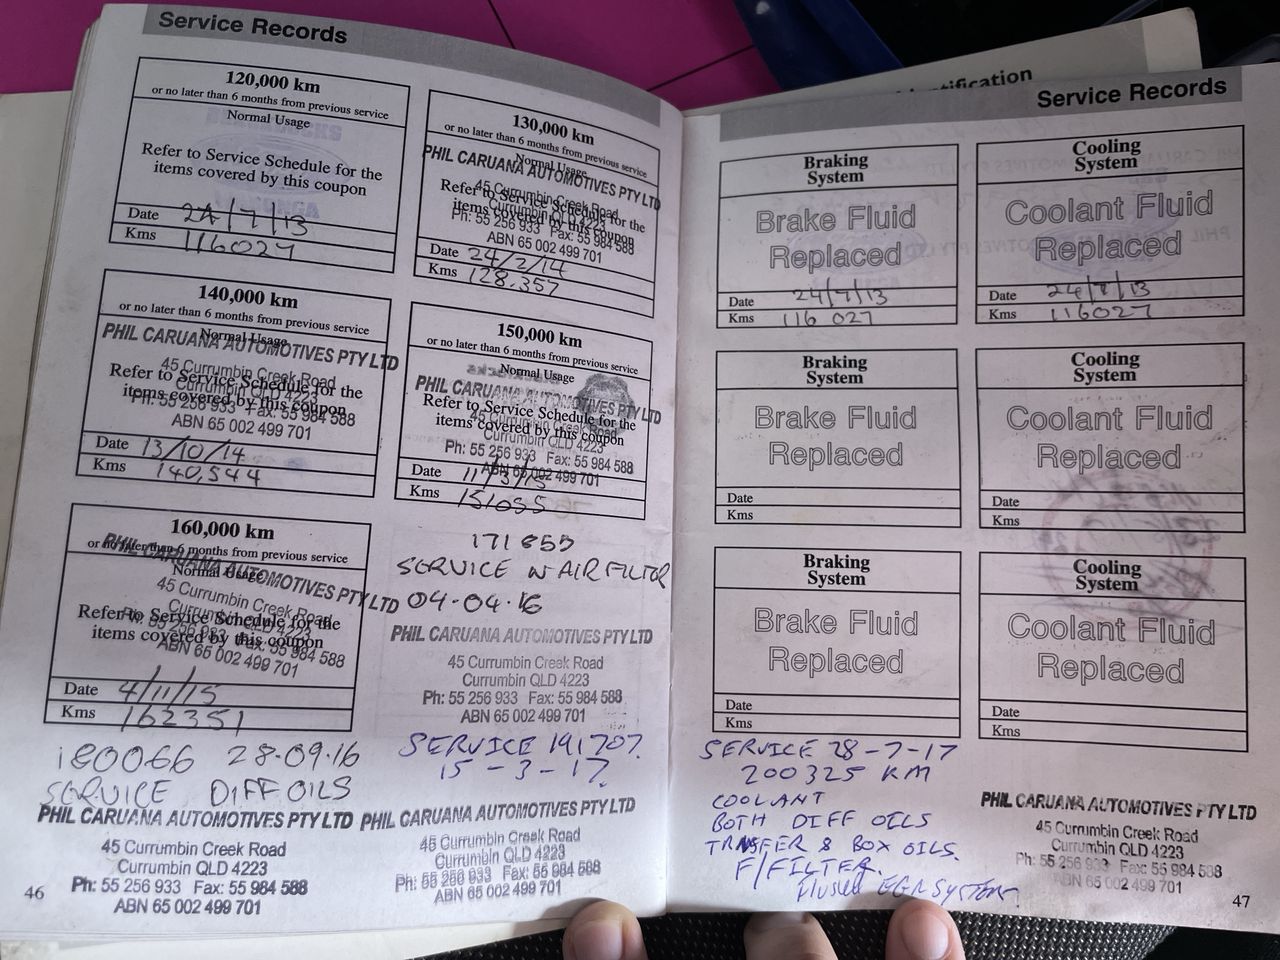 Service Records
120,000 km
or no later than 6 months from previous service
Normal Usage
Refer to Service Schedule for the
items covered by this coupon
Date 24/7/13
Kms 116027
130,000 km
or no later than 6 months from previous service
Normal Usage
PHIL CARUANA AUTOMOTIVES PTY LTD
Refer to Service Schedule for the
items covered by this coupon
45 Currumbin Creek Road
Currumbin QLD 4223
Ph: 55 256 933 Fax: 55 984 588
ABN 65 002 499 701
Date 24/2/14
Kms 128.357
140,000 km
or no later than 6 months from previous service
Normal Usage
PHIL CARUANA AUTOMOTIVES PTY LTD
Refer to Service Schedule for the
items covered by this coupon
45 Currumbin Creek Road
Currumbin QLD 4223
Ph: 55 256 933 Fax: 55 984 588
ABN 65 002 499 701
Date 13/10/14
Kms 140,544
150,000 km
or no later than 6 months from previous service
Normal Usage
PHIL CARUANA AUTOMOTIVES PTY LTD
Refer to Service Schedule for the
items covered by this coupon
45 Currumbin Creek Road
Currumbin QLD 4223
Ph: 55 256 933 Fax: 55 984 588
ABN 65 002 499 701
Date 11/3/15
Kms 151055
160,000 km
or no later than 6 months from previous service
Normal Usage
PHIL CARUANA AUTOMOTIVES PTY LTD
Refer to Service Schedule for the
items covered by this coupon
45 Currumbin Creek Road
Currumbin QLD 4223
Ph: 55 256 933 Fax: 55 984 588
ABN 65 002 499 701
Date 4/11/15
Kms 162351
171855
SERVICE N AIR FILTER
04-04-16
PHIL CARUANA AUTOMOTIVES PTY LTD
45 Currumbin Creek Road
Currumbin QLD 4223
Ph: 55 256 933 Fax: 55 984 588
ABN 65 002 499 701
180066 28-09-16
SERVICE DIFF OILS
PHIL CARUANA AUTOMOTIVES PTY LTD
45 Currumbin Creek Road
Currumbin QLD 4223
Ph: 55 256 933 Fax: 55 984 588
ABN 65 002 499 701
SERVICE 191707.
15-3-17.
PHIL CARUANA AUTOMOTIVES PTY LTD
45 Currumbin Creek Road
Currumbin QLD 4223
Ph: 55 256 933 Fax: 55 984 588
ABN 65 002 499 701
46
Service Records
Braking
System
Brake Fluid
Replaced
Date 24/7/13
Kms 116 027
Cooling
System
Coolant Fluid
Replaced
Date 24/7/13
Kms 116027
Braking
System
Brake Fluid
Replaced
Date
Kms
Cooling
System
Coolant Fluid
Replaced
Date
Kms
Braking
System
Brake Fluid
Replaced
Date
Kms
Cooling
System
Coolant Fluid
Replaced
Date
Kms
SERVICE 28-7-17
200325 KM
COOLANT
BOTH DIFF OILS
TRANSFER & BOX OILS.
F/FILTER.
flushed EGR SYSTEM.
PHIL CARUANA AUTOMOTIVES PTY LTD
45 Currumbin Creek Road
Currumbin QLD 4223
Ph: 55 256 933 Fax: 55 984 588
ABN 65 002 499 701
47